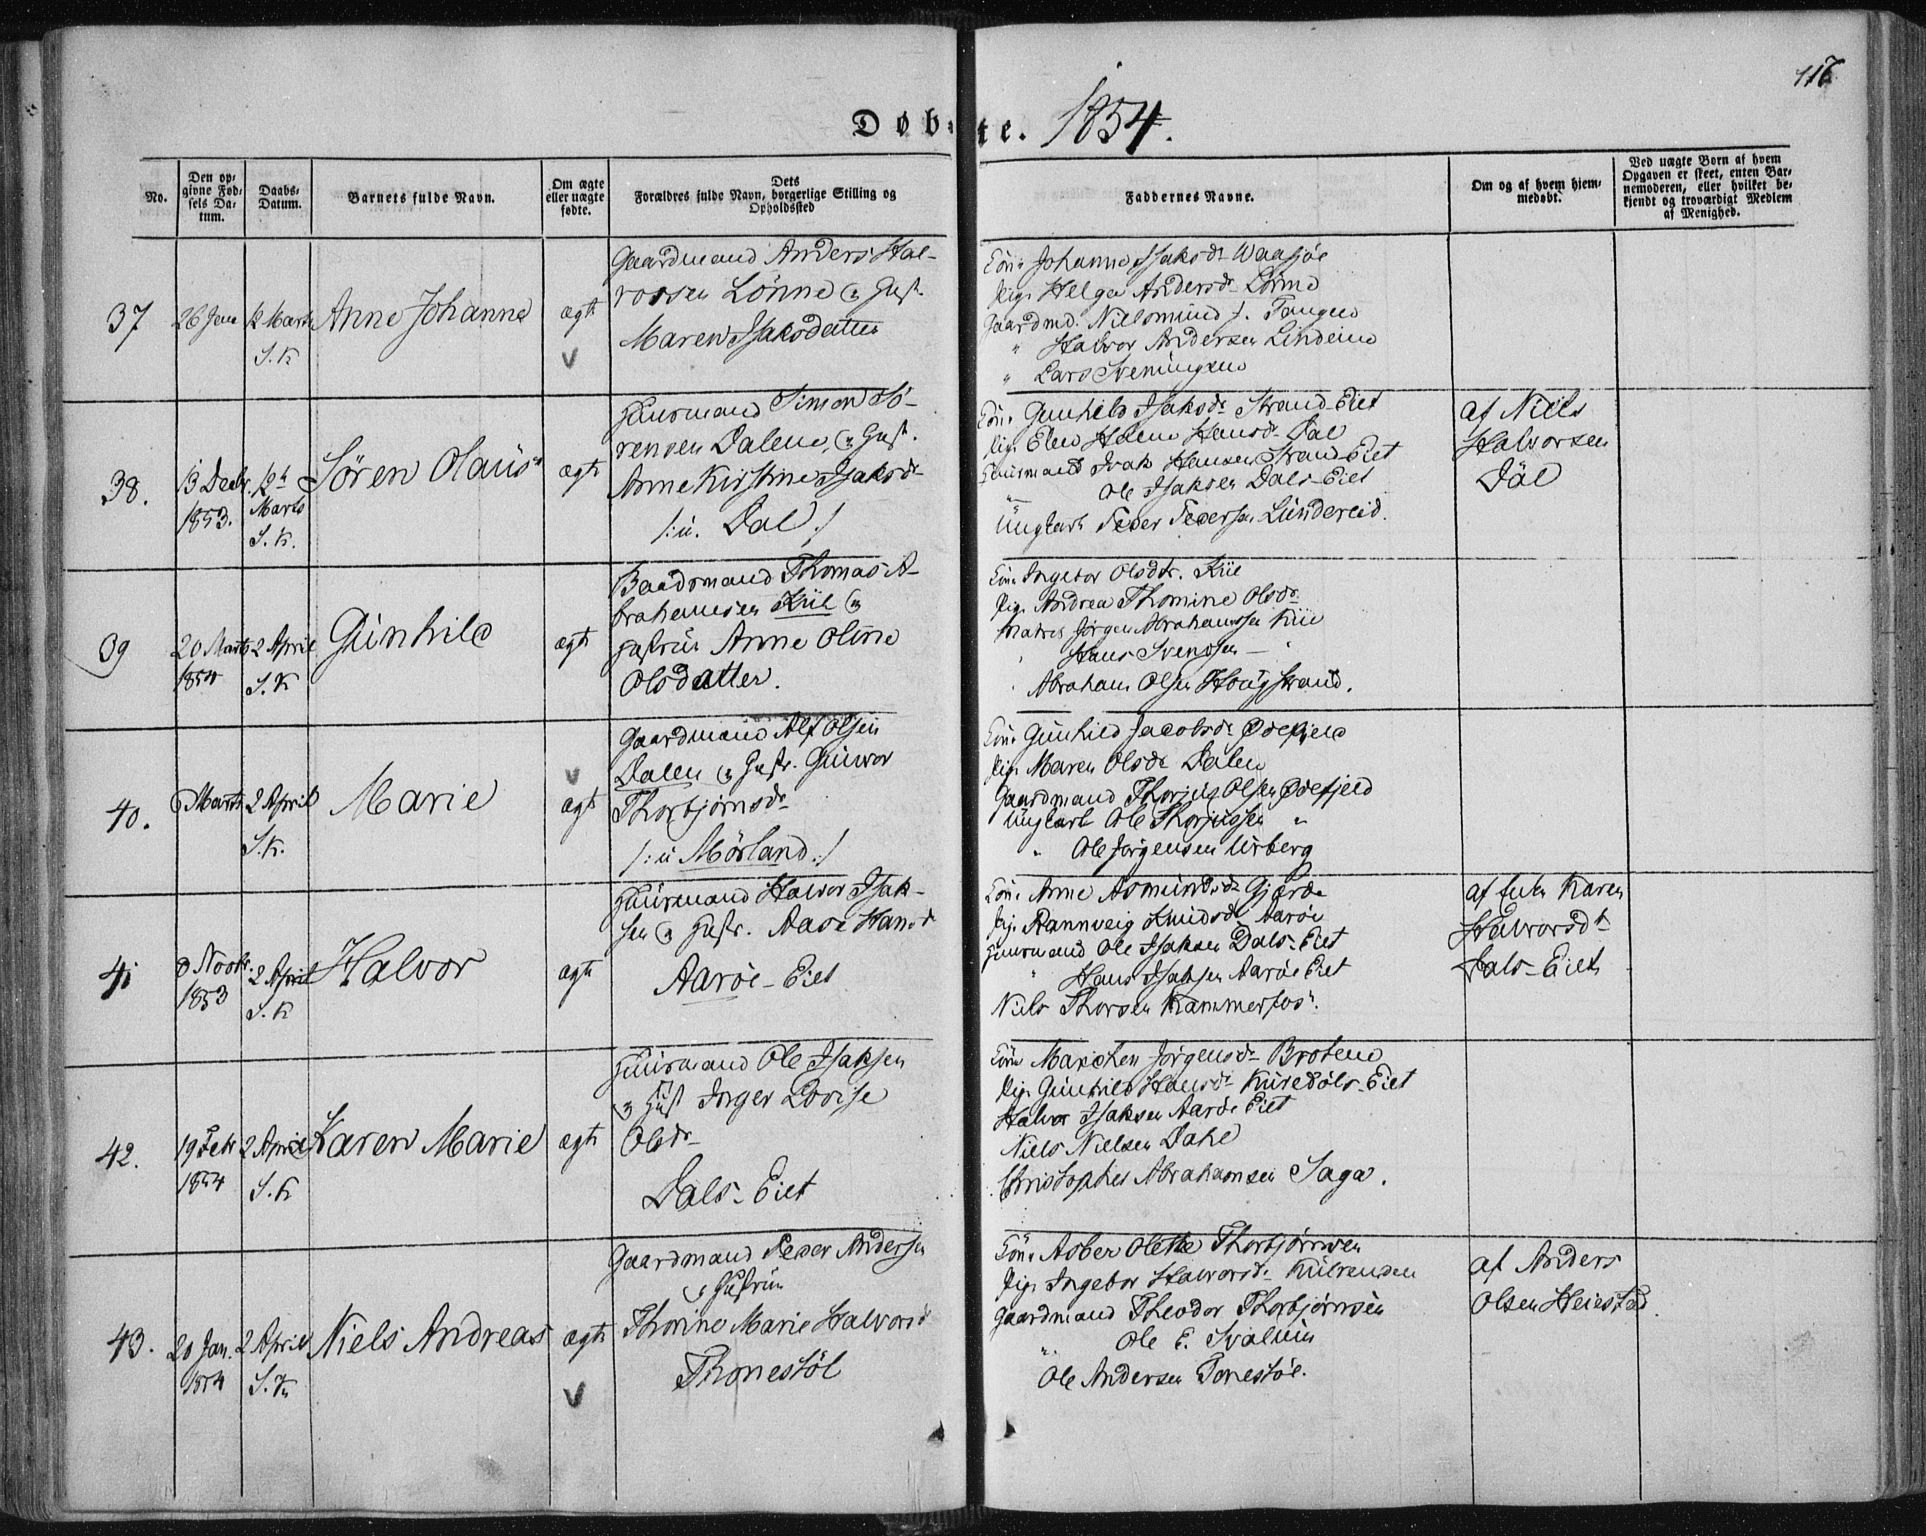 117
Døbte. 1854.
No.
Den opgivne Fødsels Datum.
Daabs-Datum.
Barnets fulde Navn.
Om ægte eller uægte fødte.
Dets Forældres fulde Navn, borgerlige Stilling og Opholdssted
Faddernes Navne.
Om og af hvem hjemmedøbt.
Ved uægte Børn af hvem Opgaven er skeet, enten Barnemoderen, eller hvilket bekjendt og troværdigt Medlem af Menighed.
37
26 Jan
12 Marts
S. K
Anne Johanne
ægte
Gaardmand Anders Hal-
vorsen Lönne & Hust.
Maren Isaksdatter
Kone Johanne Isaksdr Waasjöe
Pige Helga Andersdr Lönne
Gaardmd. Nielsmund J. Tangen
" Halvor Andersen Lindeim
" Lars Sveningsen
38.
13 Decbr.
1853.
12te
Marts
S. K.
Sören Olaus
ægte
Huusmand Simon Sö-
rensen Dalene, & Hust.
Anne Kirstine Isaksdr
/: u. Dal :/
Kone Gunhild Isaksdr Strand-Eiet
Pige Elen Helene Hansdr Dal
Huusmand Isak Hansen Strand-Eiet
" Ole Isaksen Dals-Eiet
Ungkarl Peder Pedersen Lundereid.
af Niels
Halvorsen
Däl
39
20 Marts
1854
2 April
S. K
Gunhild
ægte
Baadsmand Thomas A-
brahamsen Kiil &
Hustrue Anne Oline
Olsdatter.
Kone Ingebor Olsdtr. Kiil
Pige Andrea Thomine Olsdr
Matros Jörgen Abrahamsen Kiil
" Hans Svendsen — "
" Abraham Olsen Hougstrand.
40.
6 Marts
2 April
S. K.
Marie
ægte
Gaardmand Alf Olsen
Dalen & Hustr. Gunvor
Thorbjörnsdr
/: u Mörland :/
Kone Gunhild Jacobsdr Ödefjeld
Pige Maren Olsdr Dalen
Gaardmand Thorjus Olsen Ödefjeld
Ungkarl Ole Thorjussen "
" Ole Jörgensen Urberg
41
8 Novbr.
1853
2 April
S. K
Halvor
ægte
Huusmand Halvor Isak-
sen & Hustr. Aase Hansdr
Aaröe-Eiet
Kone Anne Asmundsdr Gjerde
Pige Rannveig Knudsdr Aaröe
Huusmand Ole Isaksen Dals-Eiet
" Hans Isaksen Aaröe Eiet
Niels Thorsen Kammerfos.
af Enke Karen
Halvorsdr
Dals-Eiet
42.
19 Febr
1854
2 April
S. K
Karen Marie
ægte
Huusmand Ole Isaksen
& Hust Inger Lovise
Olsdr
Dals-Eiet
Kone Marichen Jörgensdr Brotene
Pige Gunhild Hansdr Kuredöls-Eiet
Halvor Isaksen Aaröe Eiet
Niels Nielsen Dahl
Christopher Abrahamsen Saga.
43.
20 Jan.
1854
2 April
S. K
Niels Andreas
ægte
Gaardmand Peder Andersen
& Hustrue
Thorine Marie Halvorsdr
Thonestöl
Kone Asber Olette Thorbjörnsen
Pige Ingebor Halvorsdr
Gaardmand Theodor Thorbjörnsen
" Ole E. Svalund
Ole Andersen Tonestöl.
af Anders
Olsen Heiestad.